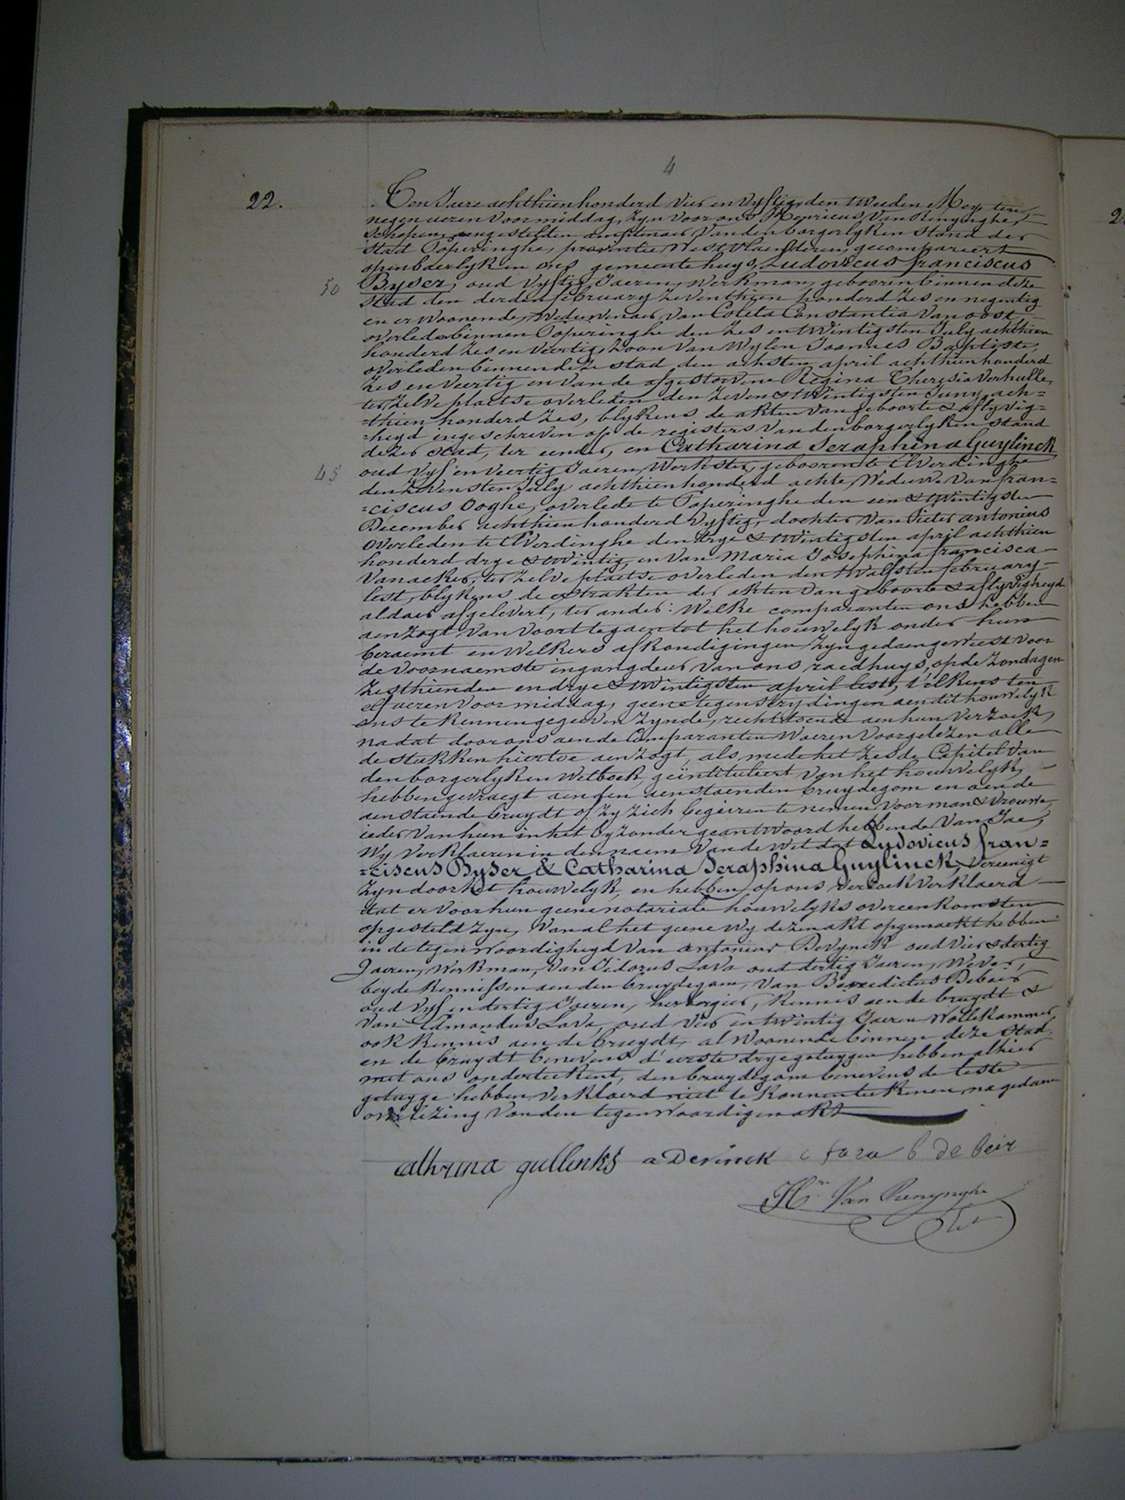 4
22.
Ten Jaere achthienhonderd vier en vyftig, den tweeden Mey, ten
negen ueren voormiddag, zyn voor ons Henricus Van Renynghe,
schepene aengestelden amptenaer vanden borgerlyken stand der
stad Poperinghe, provintie Westvlaenderen gecompareert
openbaerlyk in ons gemeentehuys, Ludovicus franciscus
50
Byser, oud vyftig Jaeren, werkman, gebooren binnen deze
stad den derden february zeventhien honderd zes en negentig
en er woonende, weduwenaer van Coleta Constantia Van oost
overleden binnen Poperinghe den zes en twintigsten July achthien
honderd zes en veertig, zoon van wylen Joannes Baptiste,
overleden binnen deze stad den achsten april achthienhonderd
zes en veertig en van de afgestorvene Regina Theresia Verhulle,
ter zelve plaetse overleden den zeven & twintigsten Juny ach=
=thien honderd zes, blykens de akten van geboorte & aflyvig=
=heyd ingeschreven op de registers van den borgerlyken stand
dezer stad, ter eender, en Catharina Seraphina Guylinck
45
oud vyf en veertig Jaeren, werkster, geboorente Elverdinghe
den zevensten July achthienhonderd acht, Weduwe van fran=
=ciscus Ooghe, overleden te Poperinghe den een & twintigsten
December achthienhonderd vyftig, dochter van Pieter antonius
overleden te Elverdinghe den drye & twintigsten april achthien
honderd drye & twintig, en van Maria Josephina francisca
Vanacker, ter zelve plaetse overleden den twalfsten february
lest, blykens de extrakten der akten van geboorte & aflyvigheyd
aldaer afgelevert, ter ander: Welke comparanten ons hebben
aenzogt van voort te gaen tot het houwelyk onder hun
beraemt en welkers afkondigingen zyn gedaen geweest voor
de voornaemste ingangdeur van ons raedhuys, op de zondagen
zesthienden en drye & twintigsten april lest, telkens ten
elf ueren voormiddag, geene tegenstrydingen aen dit houwelyk
ons te kennen gegeven zynde, recht doende aen hun verzoek,
nadat door ons aen de Comparanten waeren voorgelezen alle
de stukken hiertoe aenzogt, als mede het zesde Capitel van
den borgerlyken wetboek geïntituleert van het houwelyk,
hebben gevraegt aen den aenstaenden bruydegom en aen de
aenstaende bruydt of zy zich begeeren te nemen voor man & vrouwe
ieder van hun in het byzonder geantwoord hebbende van Jae,
Wy verklaeren in den naem van de wet dat Ludovicus fran=
=ciscus Byser & Catharina Seraphina Guylinck, vereenigt
zyn door het houwelyk, en hebben op ons verzoek verklaerd
dat er voor hun geene notariale houwelyks overeenkomsten
opgesteld zyn, van al het geene wy dezen akt opgemaekt hebben
in de tegenwoordigheyd van antonius Devynck oud vier & dertig
Jaeren, werkman, van Isidorus Lava oud dertig Jaeren, wever,
beyde kennissen aen den bruydegom, van Benedictus Debeir
oud vyf en dertig Jaeren, herbergier, kennis aen de bruydt &
van Edmondus Lava, oud vier en twintig Jaeren Wollekammer,
ook kennis aen de bruydt, al woonende binnen deze stad
en de bruydt benevens d'eerste drye getuygen hebben alhier
met ons onderteekent, den bruydegom benevens de leste
getuyge hebben verklaerd niet te konnen teekenen, na gedaene
overlezing van den tegenwoordigen akt
cathrina gullinks a Devinck Lava b de beir
Hri Van Renynghe